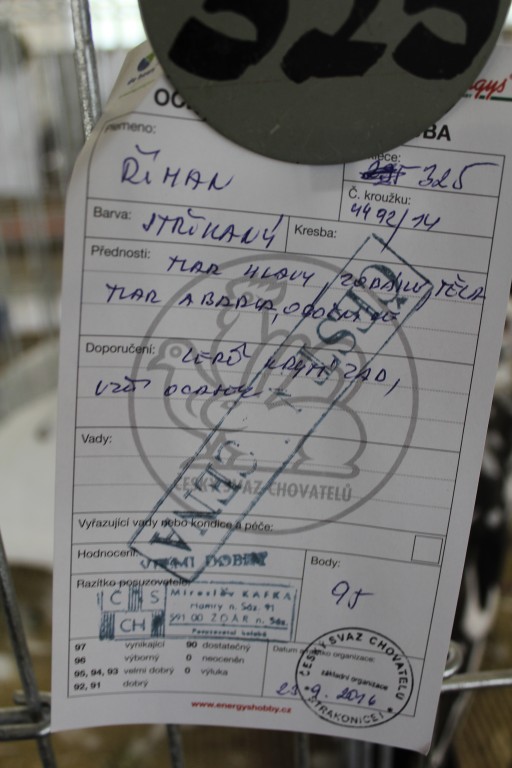 325
Plemeno:
ŘÍMAN
325
Č. kroužku:
4492/14
Barva:
STŘÍKANÝ
Kresba:
Přednosti:
TVAR HLAVY, ZOBÁKU, TĚLA
TVAR A BARVA,
Doporučení:
LEPŠÍ KRYTÍ ZAD,
UŽŠÍ OCASNÍ
ČESTNÁ CENA
ČESKÝ SVAZ CHOVATELŮ
Vady:
Vyřazující vady nebo kondice a péče:
Hodnocení:
VELMI DOBRÝ
Body:
95
Razítko posuzovatele:
ČS
CH
Miroslav KAFKA
591 00 ŽĎÁR n. Sáz.
Posuzovatel holubů
97 vynikající
96 výborný
95, 94, 93 velmi dobrý
92, 91 dobrý
90 dostatečný
0 neoceněn
0 výluka
Datum a razítko organizace:
ČESKÝ SVAZ CHOVATELŮ
základní organizace
STRAKONICE
www.energyshobby.cz